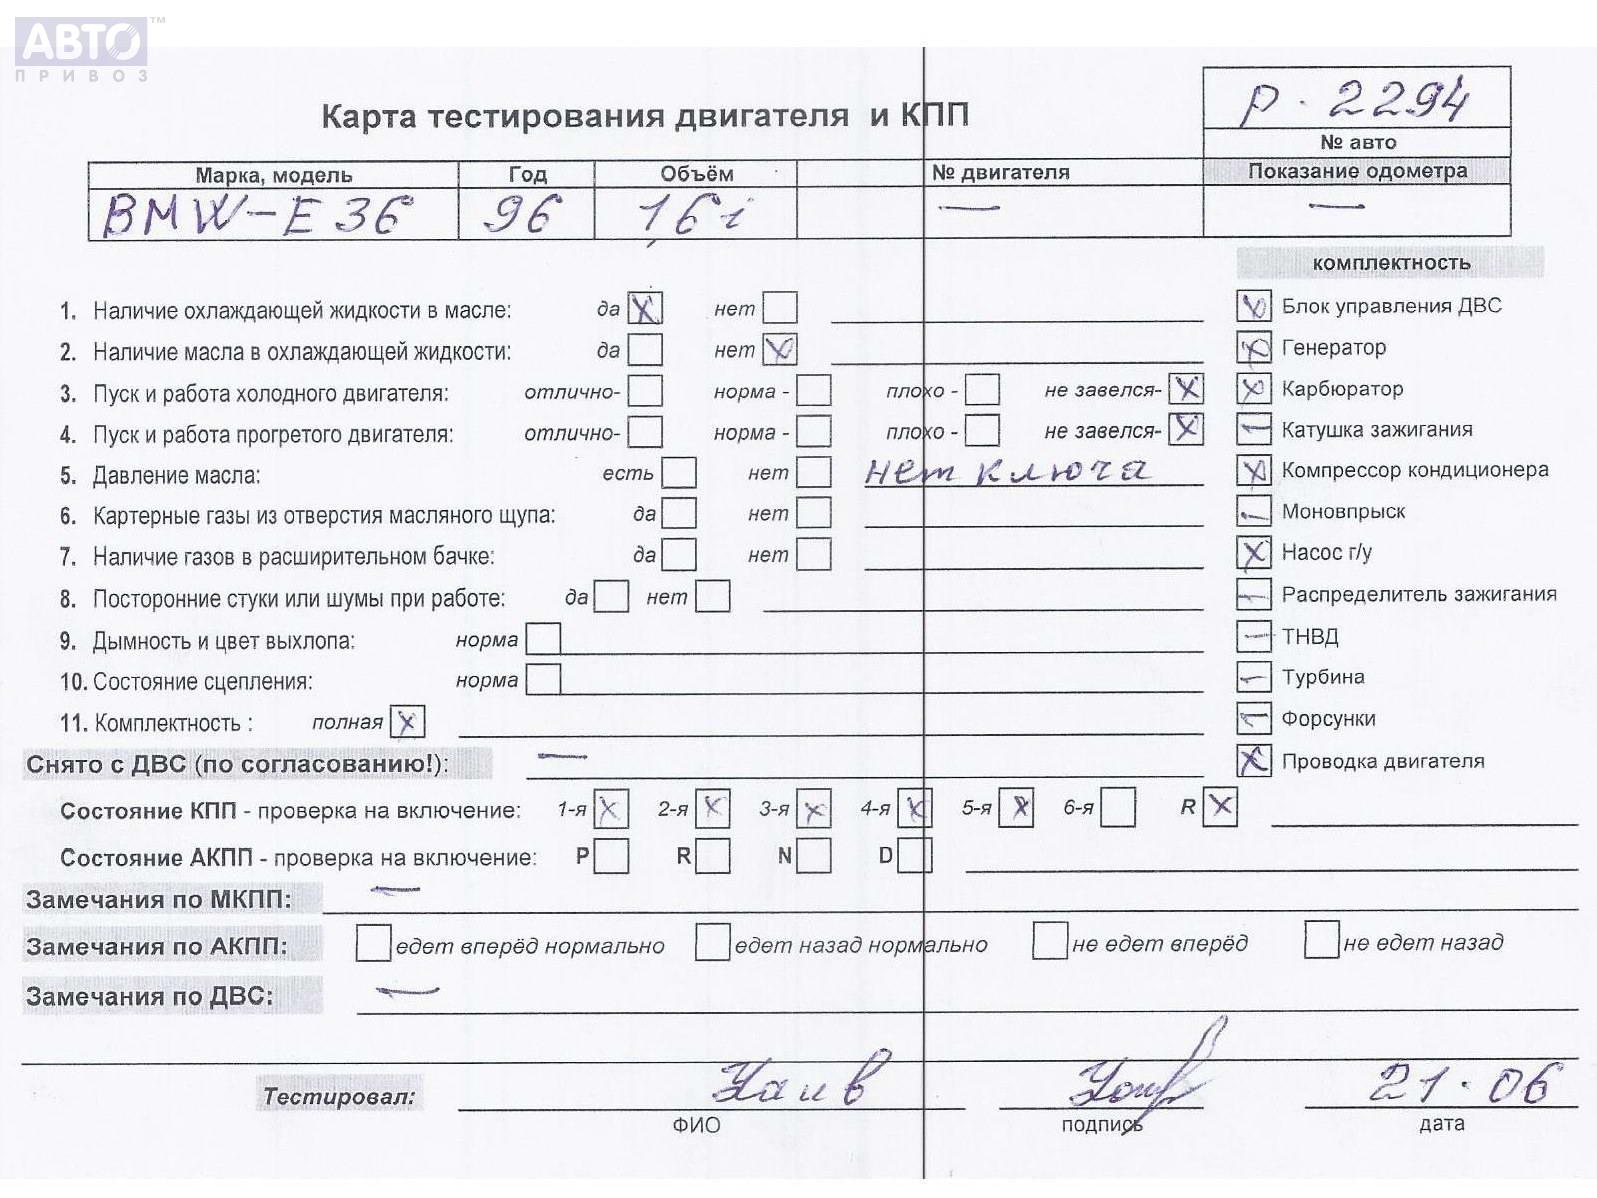 АВТО™
ПРИВОЗ
Карта тестирования двигателя и КПП
р. 2294
№ авто
Марка, модель Год Объём № двигателя Показание одометра
BMW-E36 96 16i — —
комплектность
1. Наличие охлаждающей жидкости в масле: да X нет
Блок управления ДВС
2. Наличие масла в охлаждающей жидкости: да нет X
Генератор
3. Пуск и работа холодного двигателя: отлично- норма - плохо - не завелся- X
Карбюратор
4. Пуск и работа прогретого двигателя: отлично- норма - плохо - не завелся- X
Катушка зажигания
5. Давление масла: есть нет нет ключа
Компрессор кондиционера
6. Картерные газы из отверстия масляного щупа: да нет
Моновпрыск
7. Наличие газов в расширительном бачке: да нет
Насос г/у
8. Посторонние стуки или шумы при работе: да нет
Распределитель зажигания
9. Дымность и цвет выхлопа: норма
ТНВД
10. Состояние сцепления: норма
Турбина
11. Комплектность : полная X
Форсунки
Снято с ДВС (по согласованию!): —
Проводка двигателя
Состояние КПП - проверка на включение: 1-я X 2-я X 3-я X 4-я X 5-я X 6-я R X
Состояние АКПП - проверка на включение: P R N D
Замечания по МКПП: —
Замечания по АКПП: едет вперёд нормально едет назад нормально не едет вперёд не едет назад
Замечания по ДВС: —
Тестировал: 21.06
ФИО подпись дата